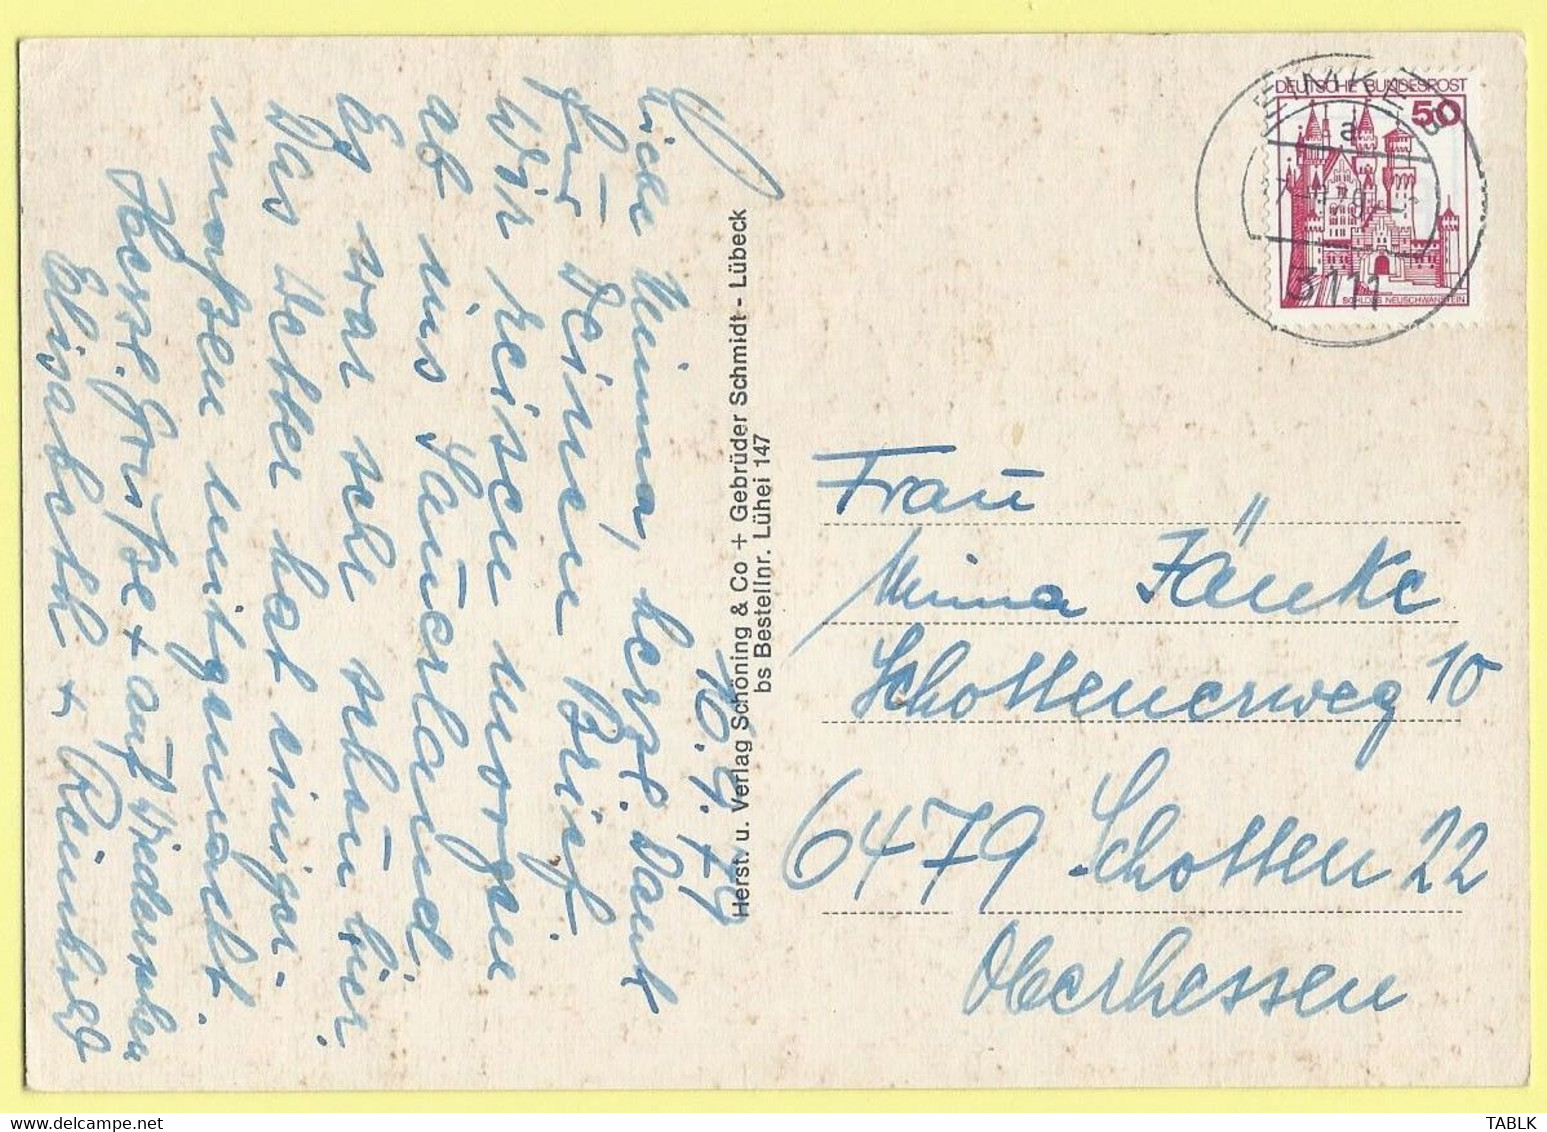 16.9.79
Liebe Minna, herzl. Dank
für Deinen Brief.
Wir reisen morgen
ab ins Sauerland
Es war sehr schön hier.
Das Wetter hat einiger-
maßen mitgemacht.
Herzl. Grüße + auf Wiedersehen
Elisabeth + Reinhold
Herst. u. Verlag Schöning & Co + Gebrüder Schmidt - Lübeck
bs Bestellnr. Lühei 147
DEUTSCHE BUNDESPOST
50
SCHLOSS NEUSCHWANSTEIN
a
3111
Frau
Minna Jänke
Schottenerweg 10
6479 Schotten 22
Oberhessen
TABLK